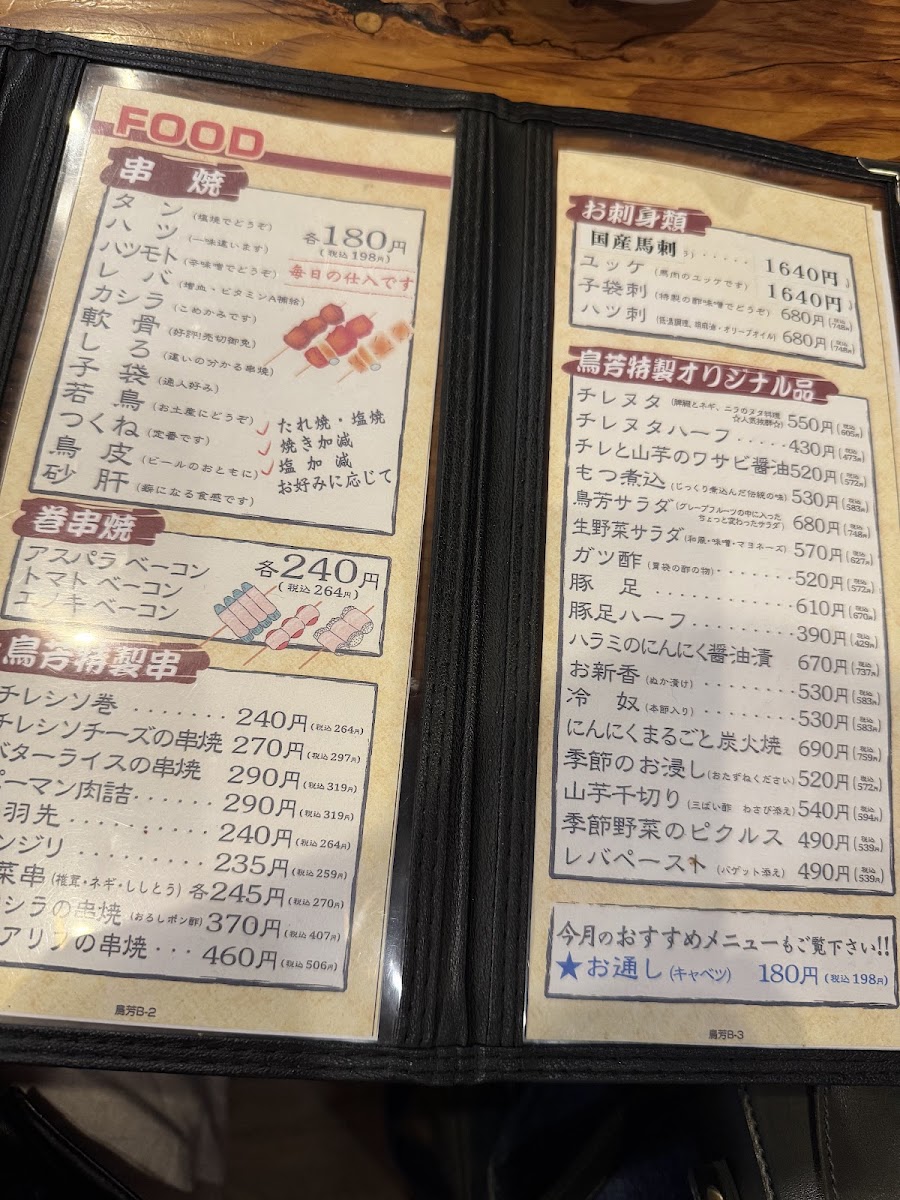 FOOD
串焼
タン (塩焼でどうぞ)
ハツ (一味違います)
ハツモト (辛味噌でどうぞ)
レバ (増血・ビタミンA補給)
カシラ (こめかみです)
軟骨 (好評!売切御免)
しろ (違いの分かる串焼)
子袋 (通人好み)
若鳥 (お土産にどうぞ)
つくね (定番です)
鳥皮 (ビールのおともに)
砂肝 (癖になる食感です)
各180円
(税込198円)
毎日の仕入です
たれ焼・塩焼
焼き加減
塩加減
お好みに応じて
巻串焼
アスパラベーコン
トマトベーコン
エノキベーコン
各240円
(税込264円)
鳥芳特製串
チレシソ巻 ........ 240円 (税込264円)
チレシソチーズの串焼 270円 (税込297円)
バターライスの串焼 290円 (税込319円)
ピーマン肉詰...... 290円 (税込319円)
羽先 .......... 240円 (税込264円)
ンジリ ......... 235円 (税込259円)
菜串 (椎茸・ネギ・ししとう) 各245円 (税込270円)
シラの串焼 (おろしポン酢) 370円 (税込407円)
の串焼 ... 460円 (税込506円)
鳥芳B-2
お刺身類
国産馬刺 ...... 1640円
ユッケ (馬肉のユッケです) 1640円
子袋刺 (特製の酢味噌でどうぞ) 680円 (税込748円)
ハツ刺 (低温調理、胡麻油・オリーブオイル) 680円 (税込748円)
鳥芳特製オリジナル品
チレヌタ (脾臓とネギ、ニラのヌタ料理 ☆人気抜群☆) 550円 (税込605円)
チレヌタハーフ ..... 430円 (税込473円)
チレと山芋のワサビ醤油 520円 (税込572円)
もつ煮込 (じっくり煮込んだ伝統の味) 530円 (税込583円)
鳥芳サラダ (グレープフルーツの中に入ったちょっと変わったサラダ) 680円 (税込748円)
生野菜サラダ (和風・味噌・マヨネーズ) 570円 (税込627円)
ガツ酢 (胃袋の酢の物) ....... 520円 (税込572円)
豚足 ............ 610円 (税込670円)
豚足ハーフ ......... 390円 (税込429円)
ハラミのにんにく醤油漬 670円 (税込737円)
お新香 (ぬか漬け) ........ 530円 (税込583円)
冷奴 (本節入り) ........ 530円 (税込583円)
にんにくまるごと炭火焼 690円 (税込759円)
季節のお浸し (おたずねください) 520円 (税込572円)
山芋千切り (三ばい酢 わさび添え) 540円 (税込594円)
季節野菜のピクルス 490円 (税込539円)
レバペースト (バゲット添え) 490円 (税込539円)
今月のおすすめメニューもご覧下さい!!
★お通し (キャベツ) 180円 (税込198円)
鳥芳B-3